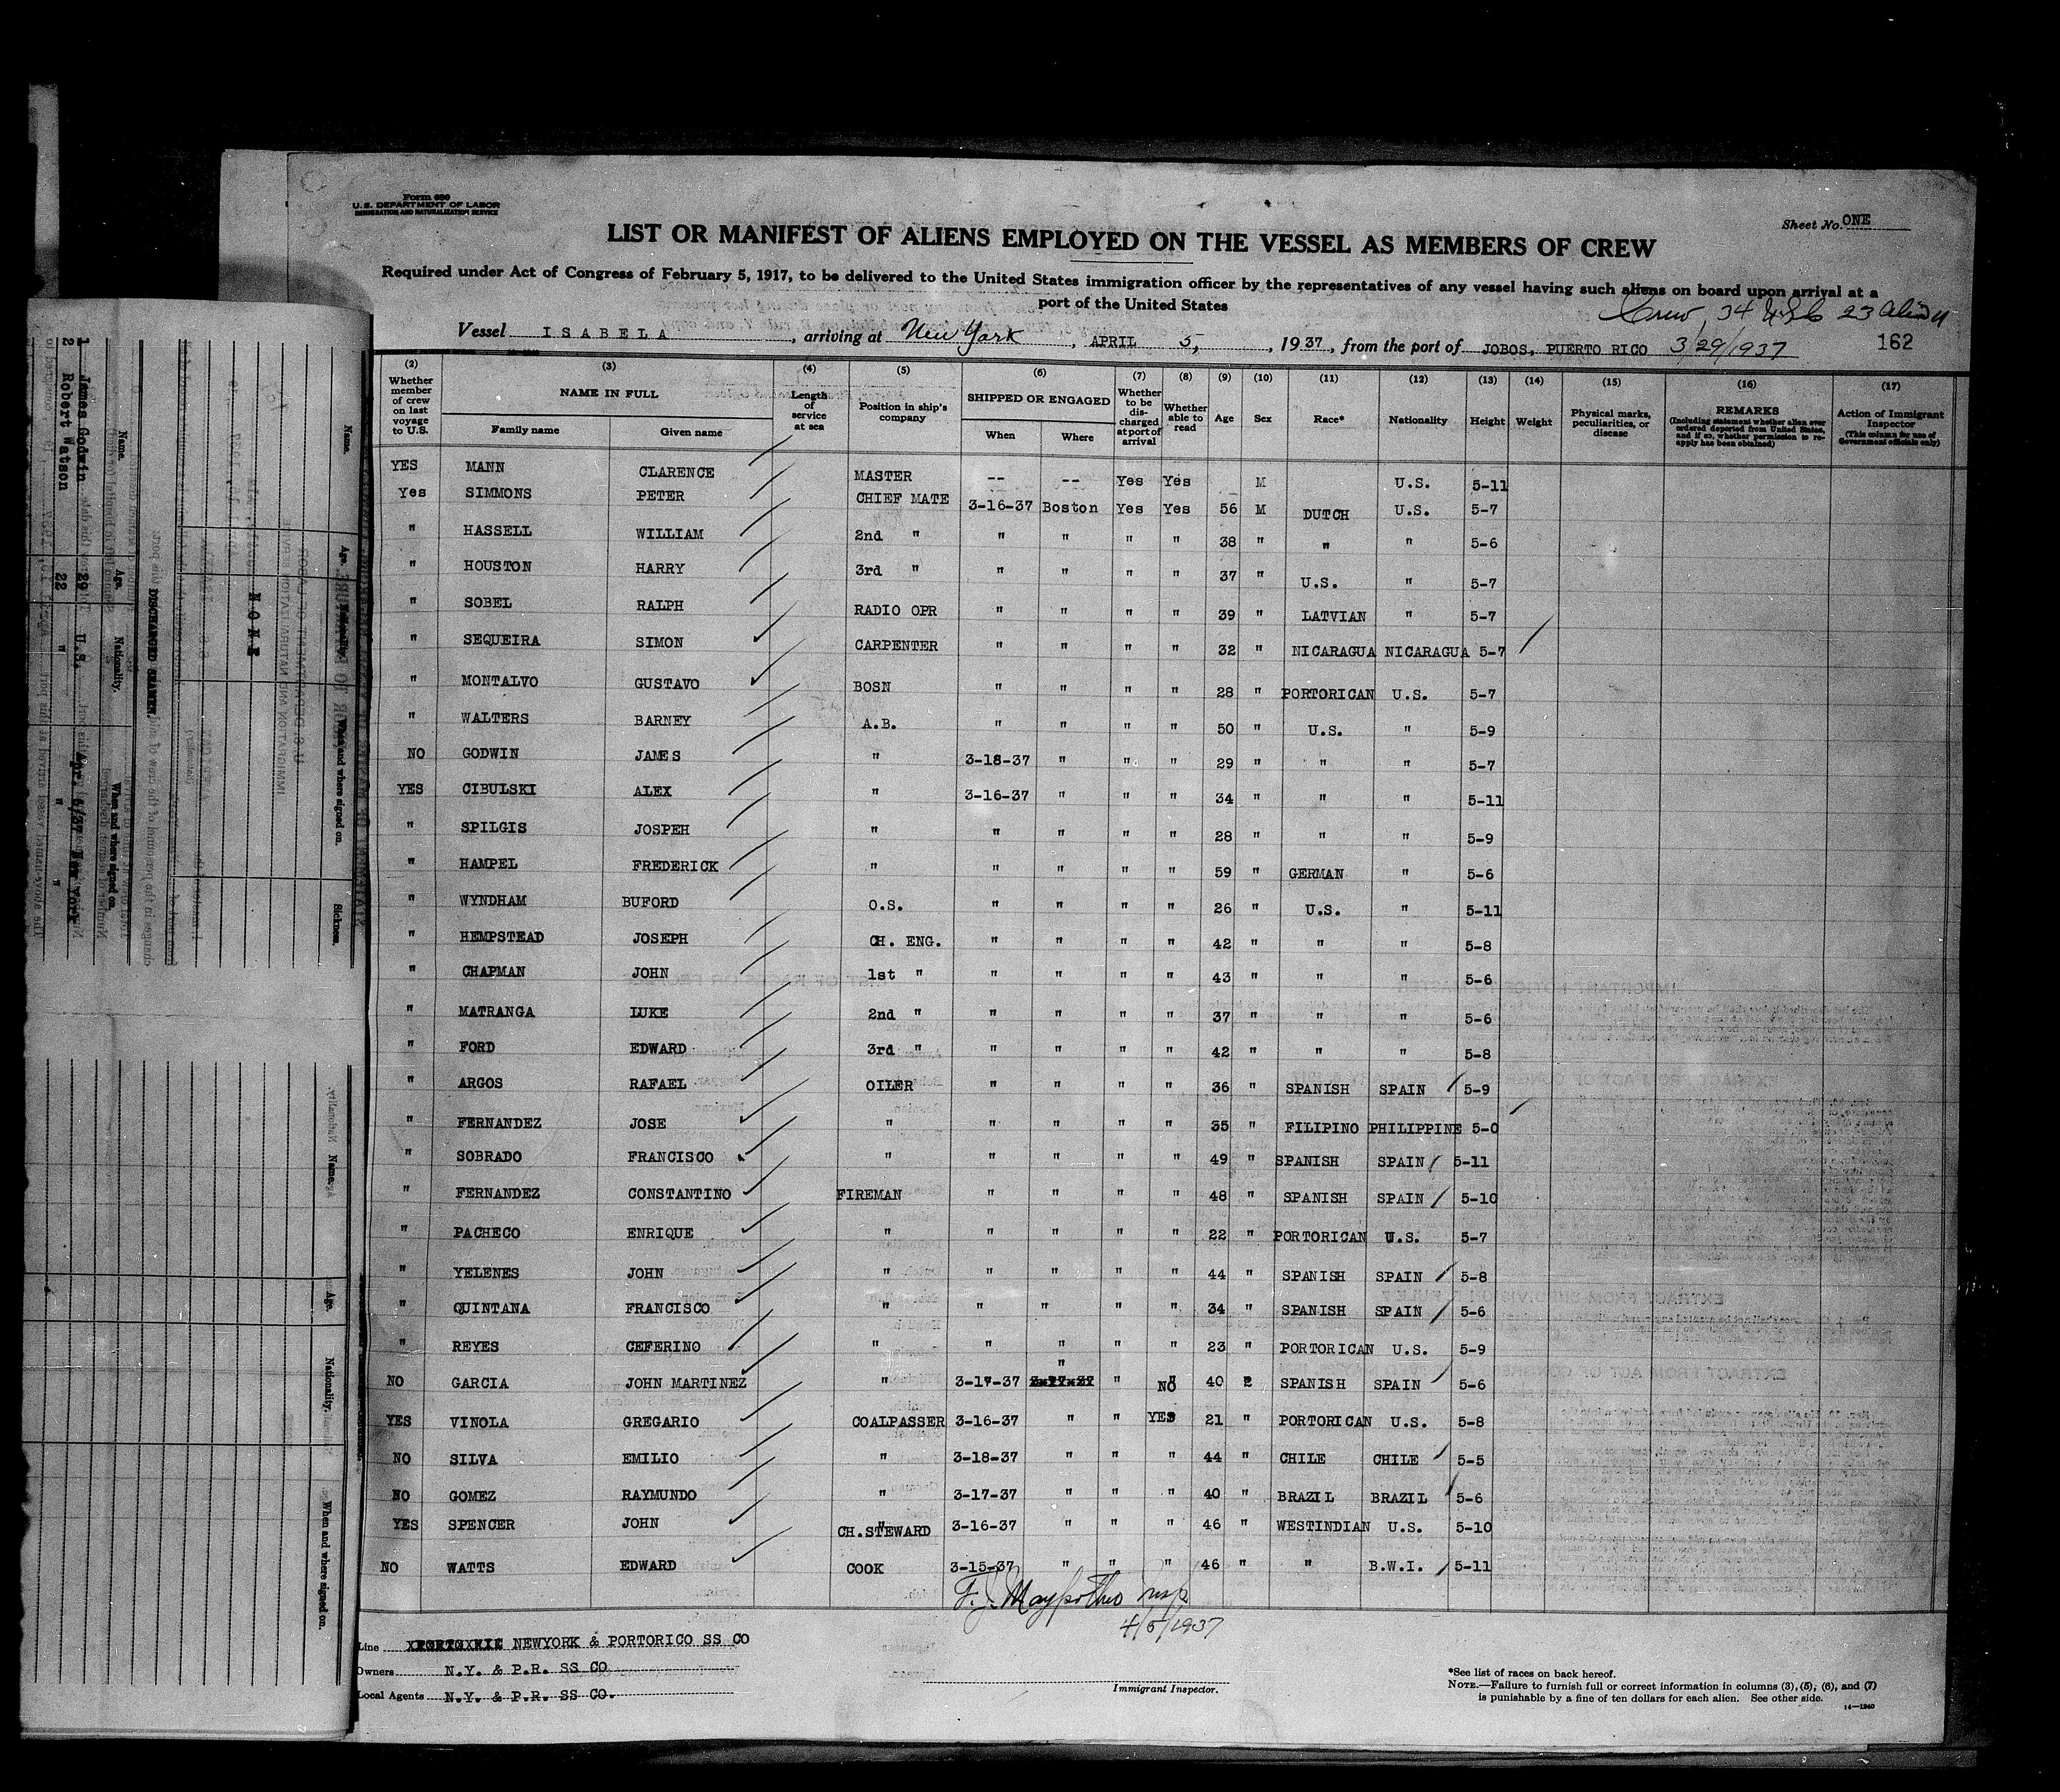 Form 680
U. S. DEPARTMENT OF LABOR
IMMIGRATION AND NATURALIZATION SERVICE
Sheet No. ONE
LIST OR MANIFEST OF ALIENS EMPLOYED ON THE VESSEL AS MEMBERS OF CREW
Required under Act of Congress of February 5, 1917, to be delivered to the United States immigration officer by the representatives of any vessel having such aliens on board upon arrival at a
port of the United States
Crew, 34 23 Alien
Vessel ISABELA, arriving at New York, APRIL 5, 1937, from the port of JOBOS, PUERTO RICO 3/29/1937 162
(2) (3) (4) (5) (6) (7) (8) (9) (10) (11) (12) (13) (14) (15) (16) (17)
Whether member of crew on last voyage to U.S. NAME IN FULL Family name Given name Length of service at sea Position in ship's company SHIPPED OR ENGAGED When Where Whether to be discharged at port of arrival Whether able to read Age Sex Race* Nationality Height Weight Physical marks, peculiarities, or disease REMARKS (Including statement whether alien ever ordered deported from United States, and if so, whether permission to reapply has been obtained) Action of Immigrant Inspector (This column for use of Government officials only)
YES MANN CLARENCE MASTER -- -- Yes Yes M U.S. 5-11
Yes SIMMONS PETER CHIEF MATE 3-16-37 Boston Yes Yes 56 M DUTCH U.S. 5-7
" HASSELL WILLIAM 2nd " " " " " 38 " " " 5-6
" HOUSTON HARRY 3rd " " " " " 37 " U.S. " 5-7
" SOBEL RALPH RADIO OPR " " " " 39 " LATVIAN " 5-7
" SEQUEIRA SIMON CARPENTER " " " " 32 " NICARAGUA NICARAGUA 5-7
" MONTALVO GUSTAVO BOSN " " " " 28 " PORTORICAN U.S. 5-7
" WALTERS BARNEY A.B. " " " " 50 " U.S. " 5-9
NO GODWIN JAMES " 3-18-37 " " " 29 " " " 5-7
YES CIBULSKI ALEX " 3-16-37 " " " 34 " " " 5-11
" SPILGIS JOSPEH " " " " " 28 " " " 5-9
" HAMPEL FREDERICK " " " " " 59 " GERMAN " 5-6
" WYNDHAM BUFORD O.S. " " " " 26 " U.S. " 5-11
" HEMPSTEAD JOSEPH CH. ENG. " " " " 42 " " " 5-8
" CHAPMAN JOHN 1st " " " " " 43 " " " 5-6
" MATRANGA LUKE 2nd " " " " " 37 " " " 5-6
" FORD EDWARD 3rd " " " " " 42 " " " 5-8
" ARGOS RAFAEL OILER " " " " 36 " SPANISH SPAIN 5-9
" FERNANDEZ JOSE " " " " " 35 " FILIPINO PHILIPPINE 5-0
" SOBRADO FRANCISCO " " " " " 49 " SPANISH SPAIN 5-11
" FERNANDEZ CONSTANTINO FIREMAN " " " " 48 " SPANISH SPAIN 5-10
" PACHECO ENRIQUE " " " " " 22 " PORTORICAN U.S. 5-7
" YELENES JOHN " " " " " 44 " SPANISH SPAIN 5-8
" QUINTANA FRANCISCO " " " " " 34 " SPANISH SPAIN 5-6
" REYES CEFERINO " " " " " 23 " PORTORICAN U.S. 5-9
NO GARCIA JOHN MARTINEZ " 3-17-37 " " NO 40 " SPANISH SPAIN 5-6
YES VINOLA GREGARIO COALPASSER 3-16-37 " " YES 21 " PORTORICAN U.S. 5-8
NO SILVA EMILIO " 3-18-37 " " " 44 " CHILE CHILE 5-5
NO GOMEZ RAYMUNDO " 3-17-37 " " " 40 " BRAZIL BRAZIL 5-6
YES SPENCER JOHN CH.STEWARD 3-16-37 " " " 46 " WESTINDIAN U.S. 5-10
NO WATTS EDWARD COOK 3-15-37 " " " 46 " " B.W.I. 5-11
4/5/1937
Line NEWYORK & PORTORICO SS CO
Owners N.Y. & P.R. SS CO
Local Agents N.Y. & P.R. SS CO.
Immigrant Inspector.
*See list of races on back hereof.
NOTE.—Failure to furnish full or correct information in columns (3), (5), (6), and (7)
is punishable by a fine of ten dollars for each alien. See other side.
14—1240
Name. Age. Nationality. When and where signed on.
1 James Godwin 29 U.S. Apr. 6/37 New York
2 Robert Watson 22 " " "
DISCHARGED SEAMEN.
NONE
Name. Age. When and where signed on. Sickness.
Name. Age. Nationality. When and where signed on.